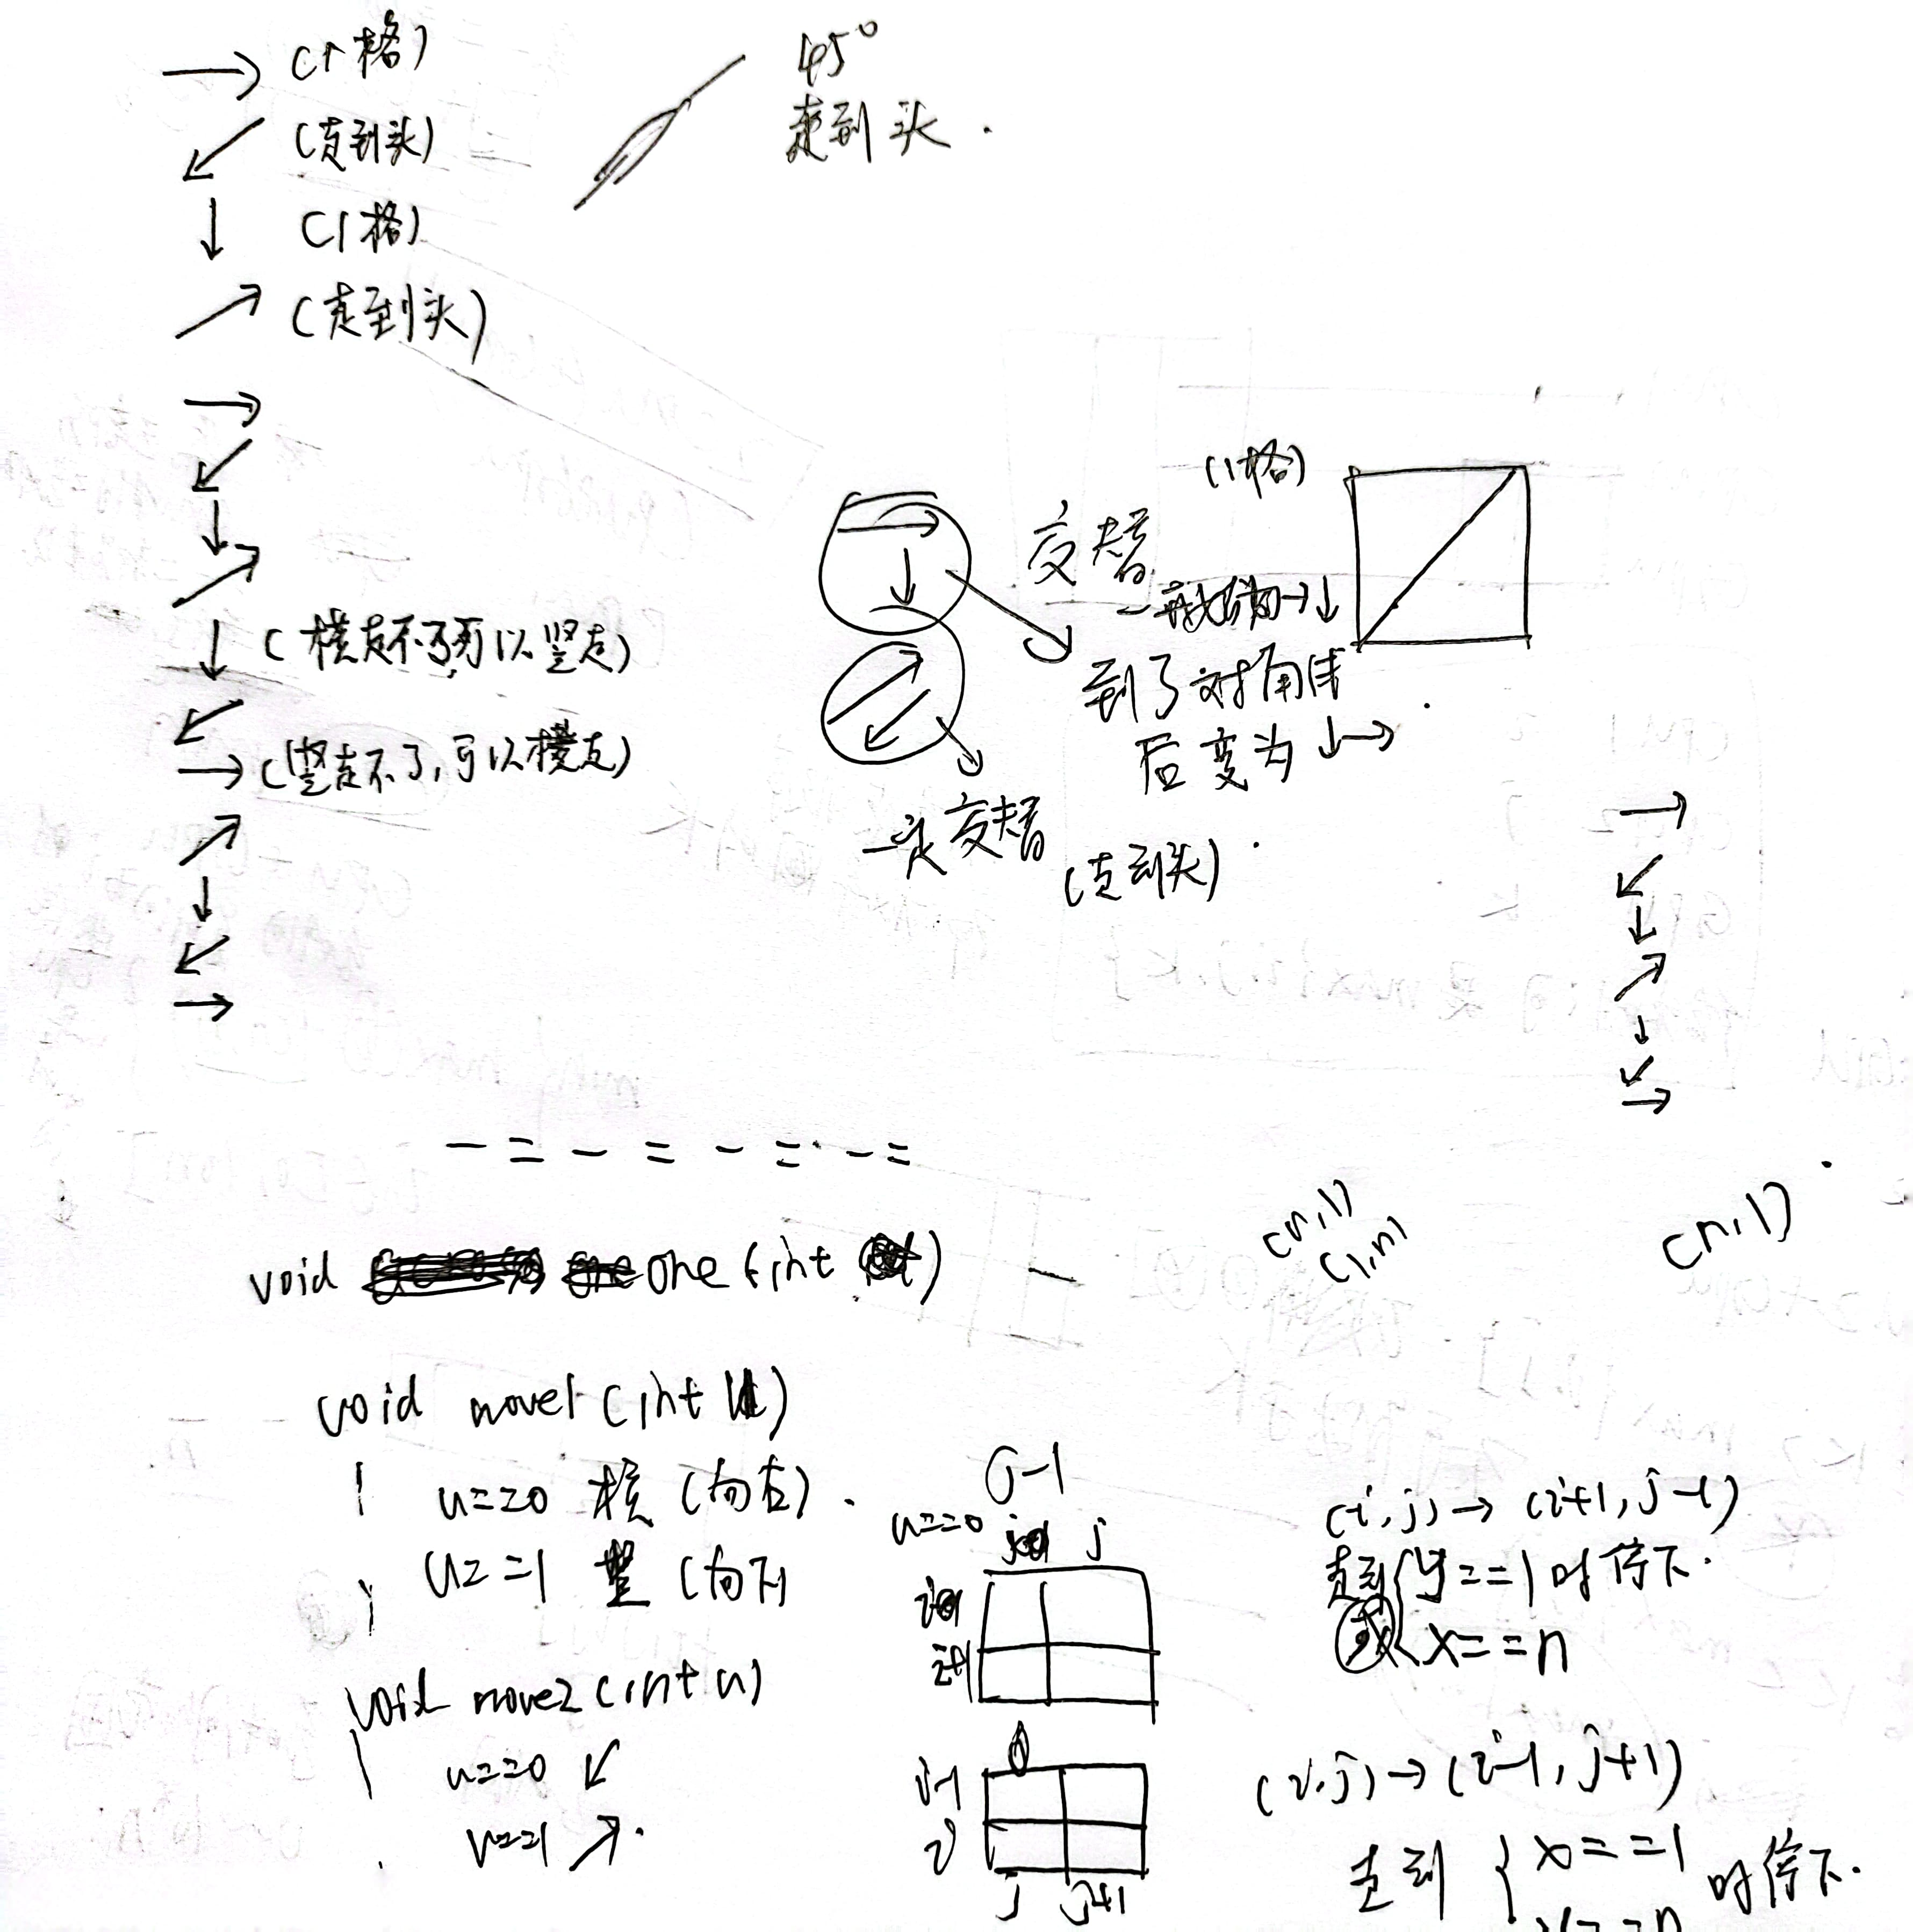 → (1格)
↙ (走到头)
↓ (1格)
↗ (走到头)
45°
走到头.
→
↙
↓
↗
↓ (横走不了可以竖走)
↙
→ (竖走不了,可以横走)
↗
↓
↙
→
(1格)
交替
→↓
到了对角线
后变为↓→
交替
(走到头)
→
↙
↓
↗
↓
↙
→
— = — = — = — =
void one (int )
(n,1)
(1,n)
(n,1)
void move1 (int u)
u==0 横 (向右).
u==1 竖 (向下)
void move2 (int u)
u==0 ↙
u==1 ↗.
j-1
u==0 j
i+1
(i,j) → (i+1, j-1)
走到 { y==1 时停下.
或 x==n
i-1
i
j j+1
(i,j) → (i-1, j+1)
走到 { x==1 时停下.
y==n